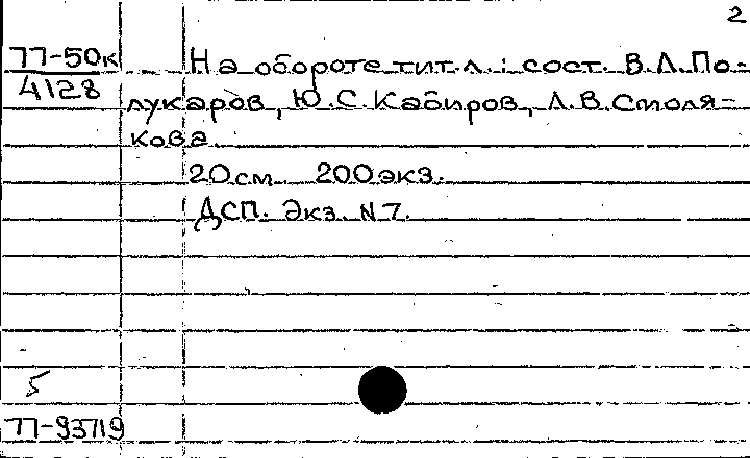 2
77-50к На обороте тит.л.: сост. В.Л.По-
4128 лукаров, Ю.С.Кабиров, Л.В.Столя-
кова.
20см. 200экз.
ДСП. Экз. N7.
5
77-93719